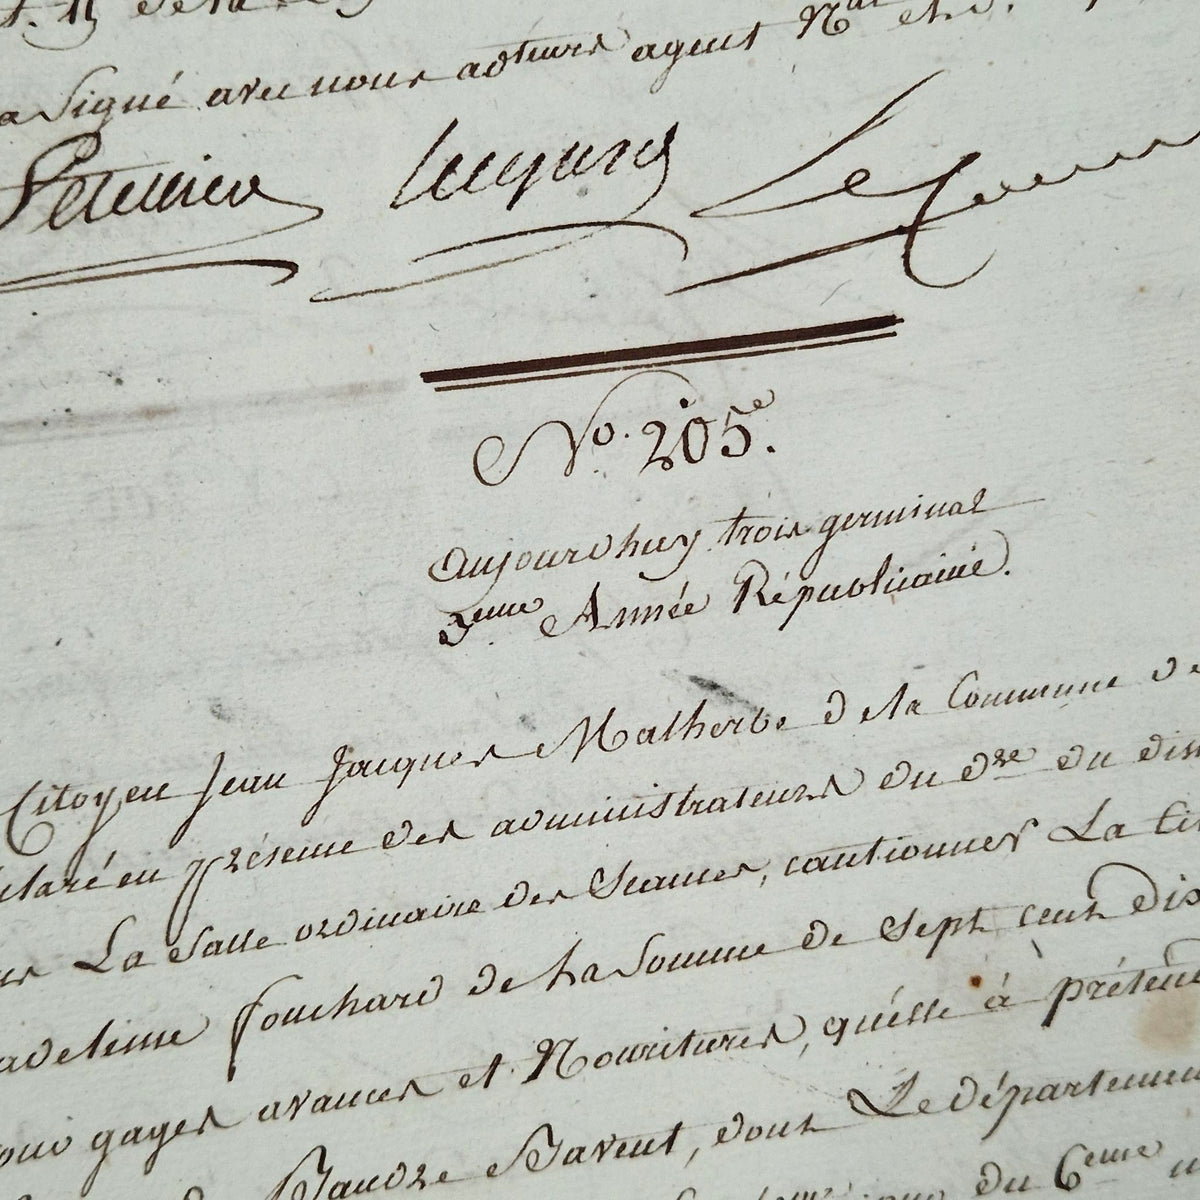 a Signé avec nous acteurs agent N.al et
Le
No. 205e.
aujourdhuy trois germinal
3eme Année Républicaine.
Citoyen Jean Jacques Malherbe de la Commune de
claré en présence des administrateurs du dre. du dis
La Salle ordinaire des Seances, cautionner La Ci
adeleine fouchard de La Somme de Sept cent dix
pour gages avances et Nouritures, quélle à préten
Bavent, dont Le département
du 6eme